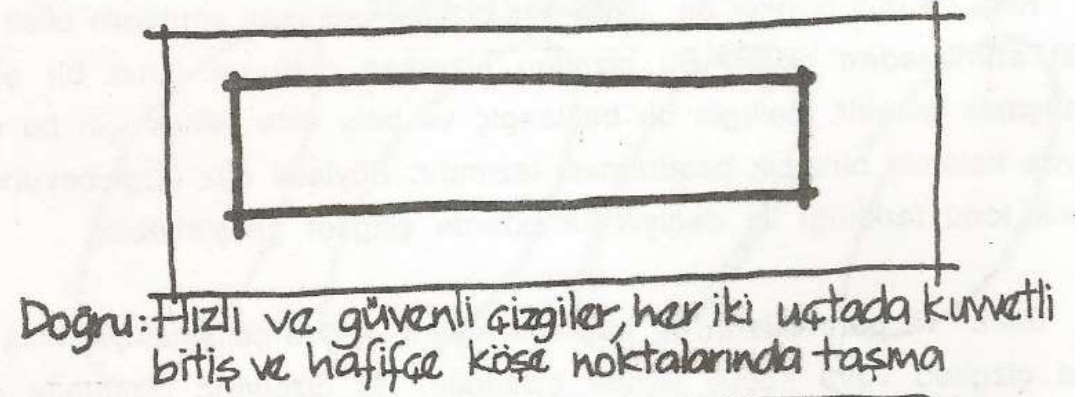 Doğru: Hızlı ve güvenli çizgiler, her iki uçtada kuvvetli
bitiş ve hafifçe köşe noktalarında taşma